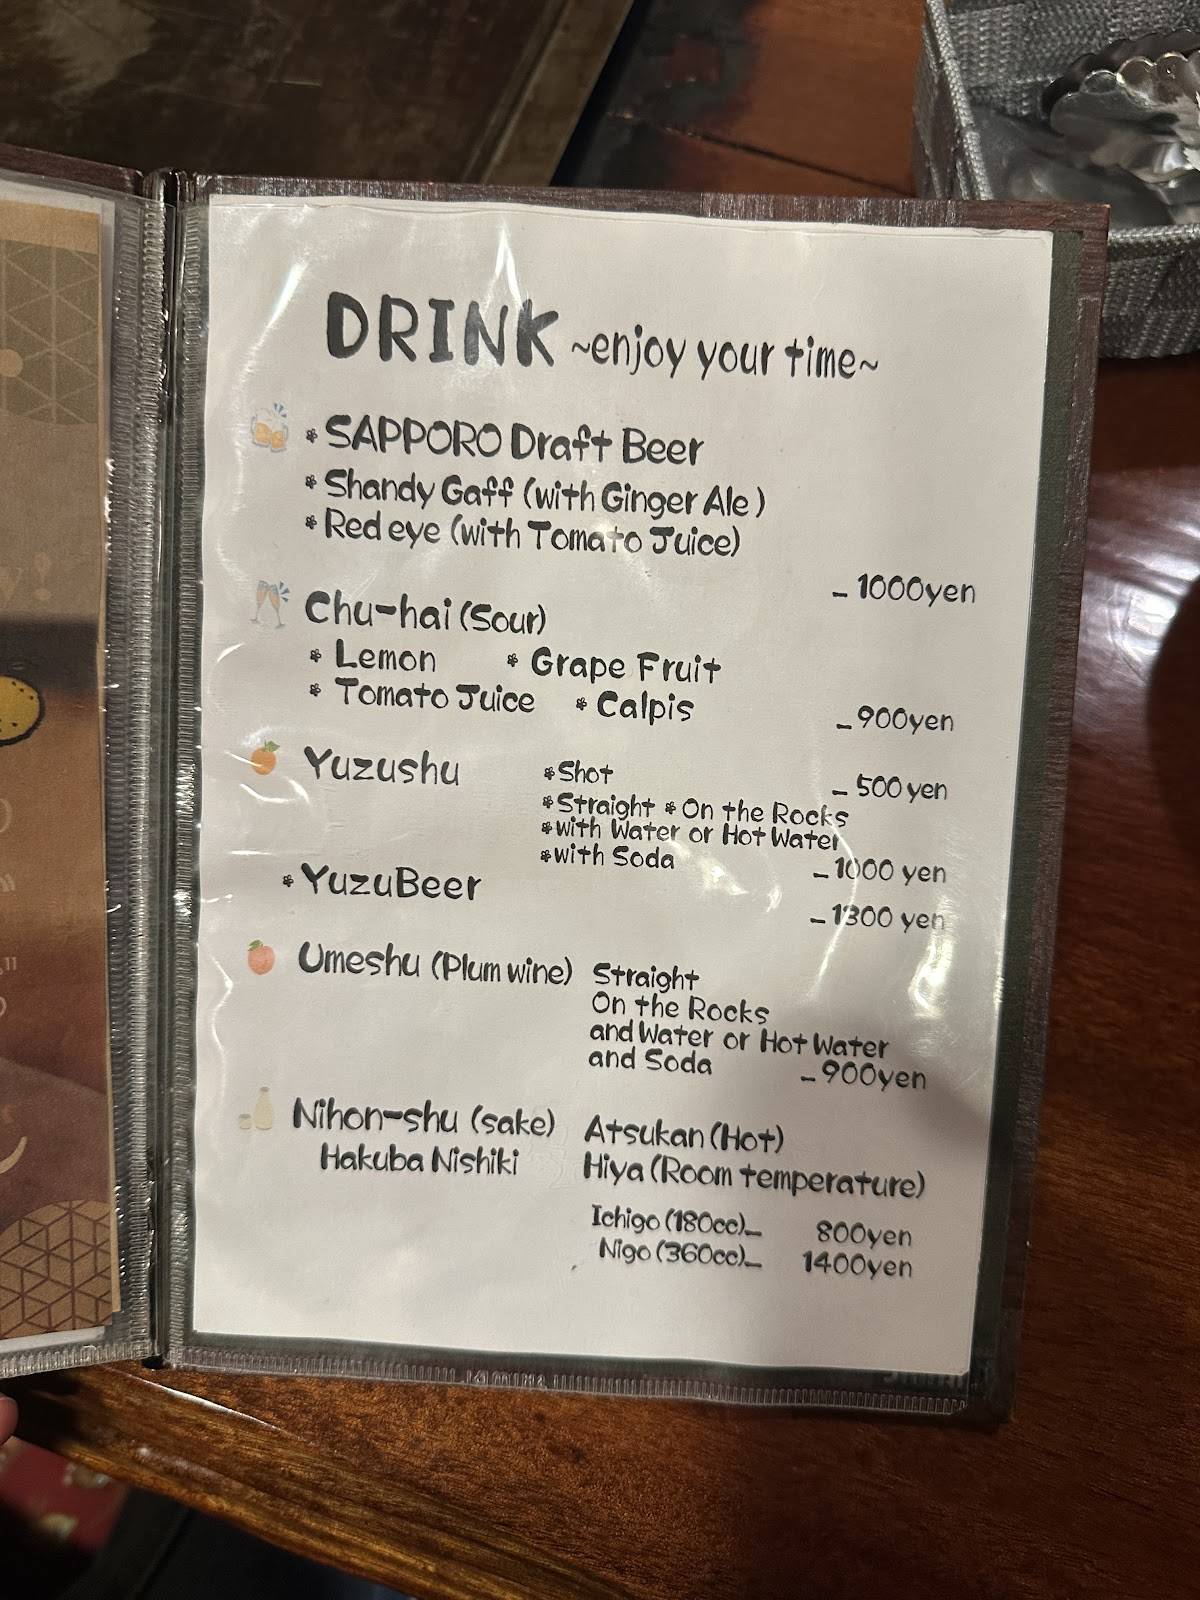 DRINK ~enjoy your time~
* SAPPORO Draft Beer
* Shandy Gaff (with Ginger Ale)
* Red eye (with Tomato Juice)
- 1000yen
Chu-hai (Sour)
* Lemon * Grape Fruit
* Tomato Juice * Calpis
- 900yen
Yuzushu * Shot - 500 yen
* Straight * On the Rocks
* with Water or Hot Water
* with Soda - 1000 yen
* YuzuBeer
- 1300 yen
Umeshu (Plum wine) Straight
On the Rocks
and Water or Hot Water
and Soda - 900yen
Nihon-shu (sake) Atsukan (Hot)
Hakuba Nishiki Hiya (Room temperature)
Ichigo (180cc)- 800yen
Nigo (360cc)- 1400yen